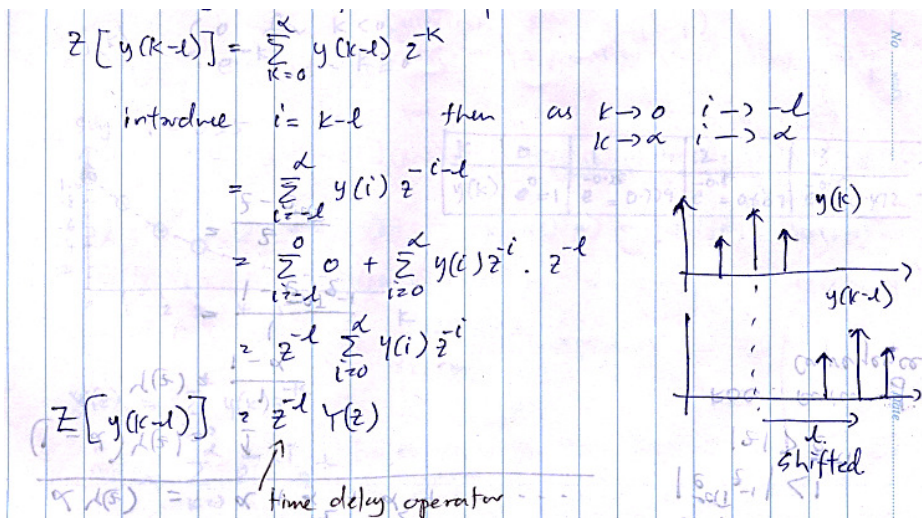 Z[y(k-l)] = ∑_{k=0}^{α} y(k-l) z^{-k}
intorduce i = k-l then as k → 0 i → -l
k → α i → α
= ∑_{i=-l}^{α} y(i) z^{-i-l}
= ∑_{i=-l}^{0} 0 + ∑_{i=0}^{α} y(i) z^{-i} . z^{-l}
= z^{-l} ∑_{i=0}^{α} y(i) z^{-i}
Z[y(k-l)] = z^{-l} Y(z)
time delay operator
y(k)
y(k-l)
l
shifted
No
Date